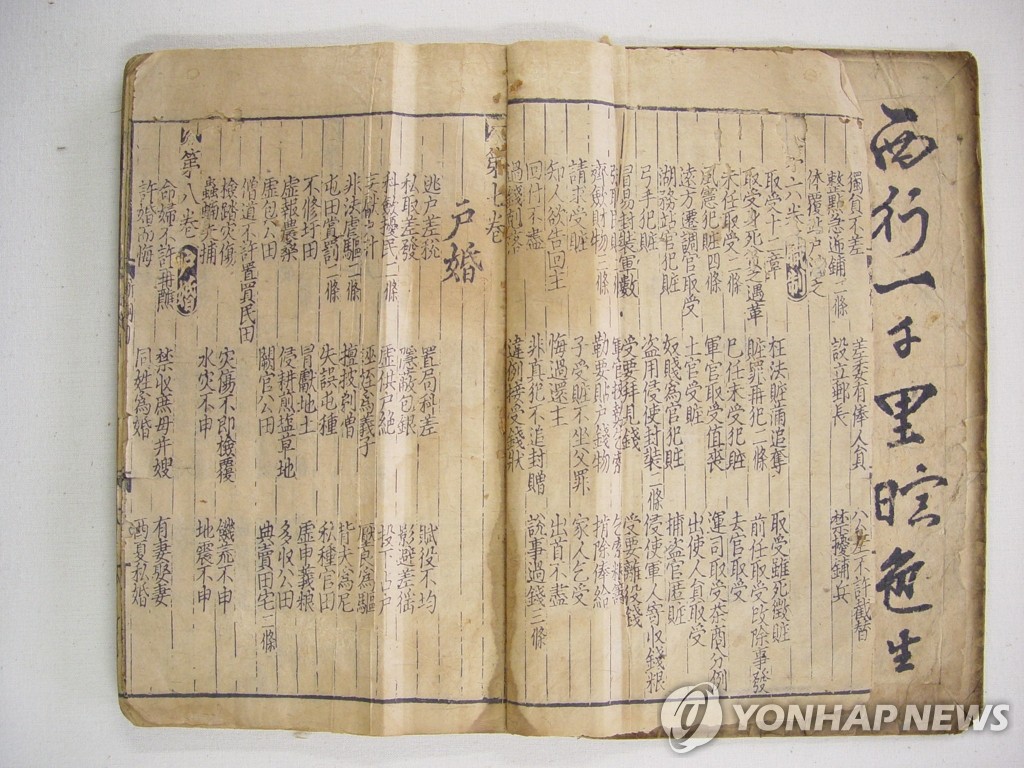 西行一千里暄生
獨員不差 差委有俸人員 公差不許截替
整點急遞鋪二條 設立郵長 禁擾鋪兵
体覆户之
第六卷
取受十二章 枉法贓滿追奪 取受雖死徵贓
取受身死貧乏遇革 贓罪再犯二條 前任取受改除事發
未任取受二條 已任未受犯贓 去官取受
風憲犯贓四條 軍官取受值喪 運司取受茶商分例
遠方遷調官取受 土官受贓 出使人員取受
湖務站官犯贓 奴賤為官犯贓 捕盜官匿贓
弓手犯贓 盜用侵使封裝二條 侵使軍人寄收錢粮
冒易封裝軍數 受要拜見錢 受要離役錢
齊斂財物三條 勒要貼户錢物 揹除俸給
請求受贓 子受贓不坐父罪 家人乞受
知人欲告回主 悔過還主 出首不盡
回付不盡 非真犯不追封贈 說事過錢三條
過錢剋落 違例接受錢狀
第七卷
户婚
逃户差稅 置局科差 賦役不均
私取差發 隱蔽包銀 影避差徭
科斂擾民二條 虛供户絶 投下占户
誣侄為義子 壓良為驅
非法虐驅二條 擅披剃僧 背夫為尼
屯田賞罰二條 失誤屯種 私種官田
不修圩田 冒獻地土 虛申義粮
虛報農桑 侵耕煎塩草地 多收公田
虛包公田 闕官公田 典賣田宅二條
僧道不許置買民田
檢踏灾傷 灾傷不即檢覆 饑荒不申
蟲蝻失捕 水灾不申 地震不申
第八卷
命婦不許再醮 禁收庶母并嫂 有妻娶妻
許婚而悔 同姓為婚 西夏私婚
YONHAP NEWS